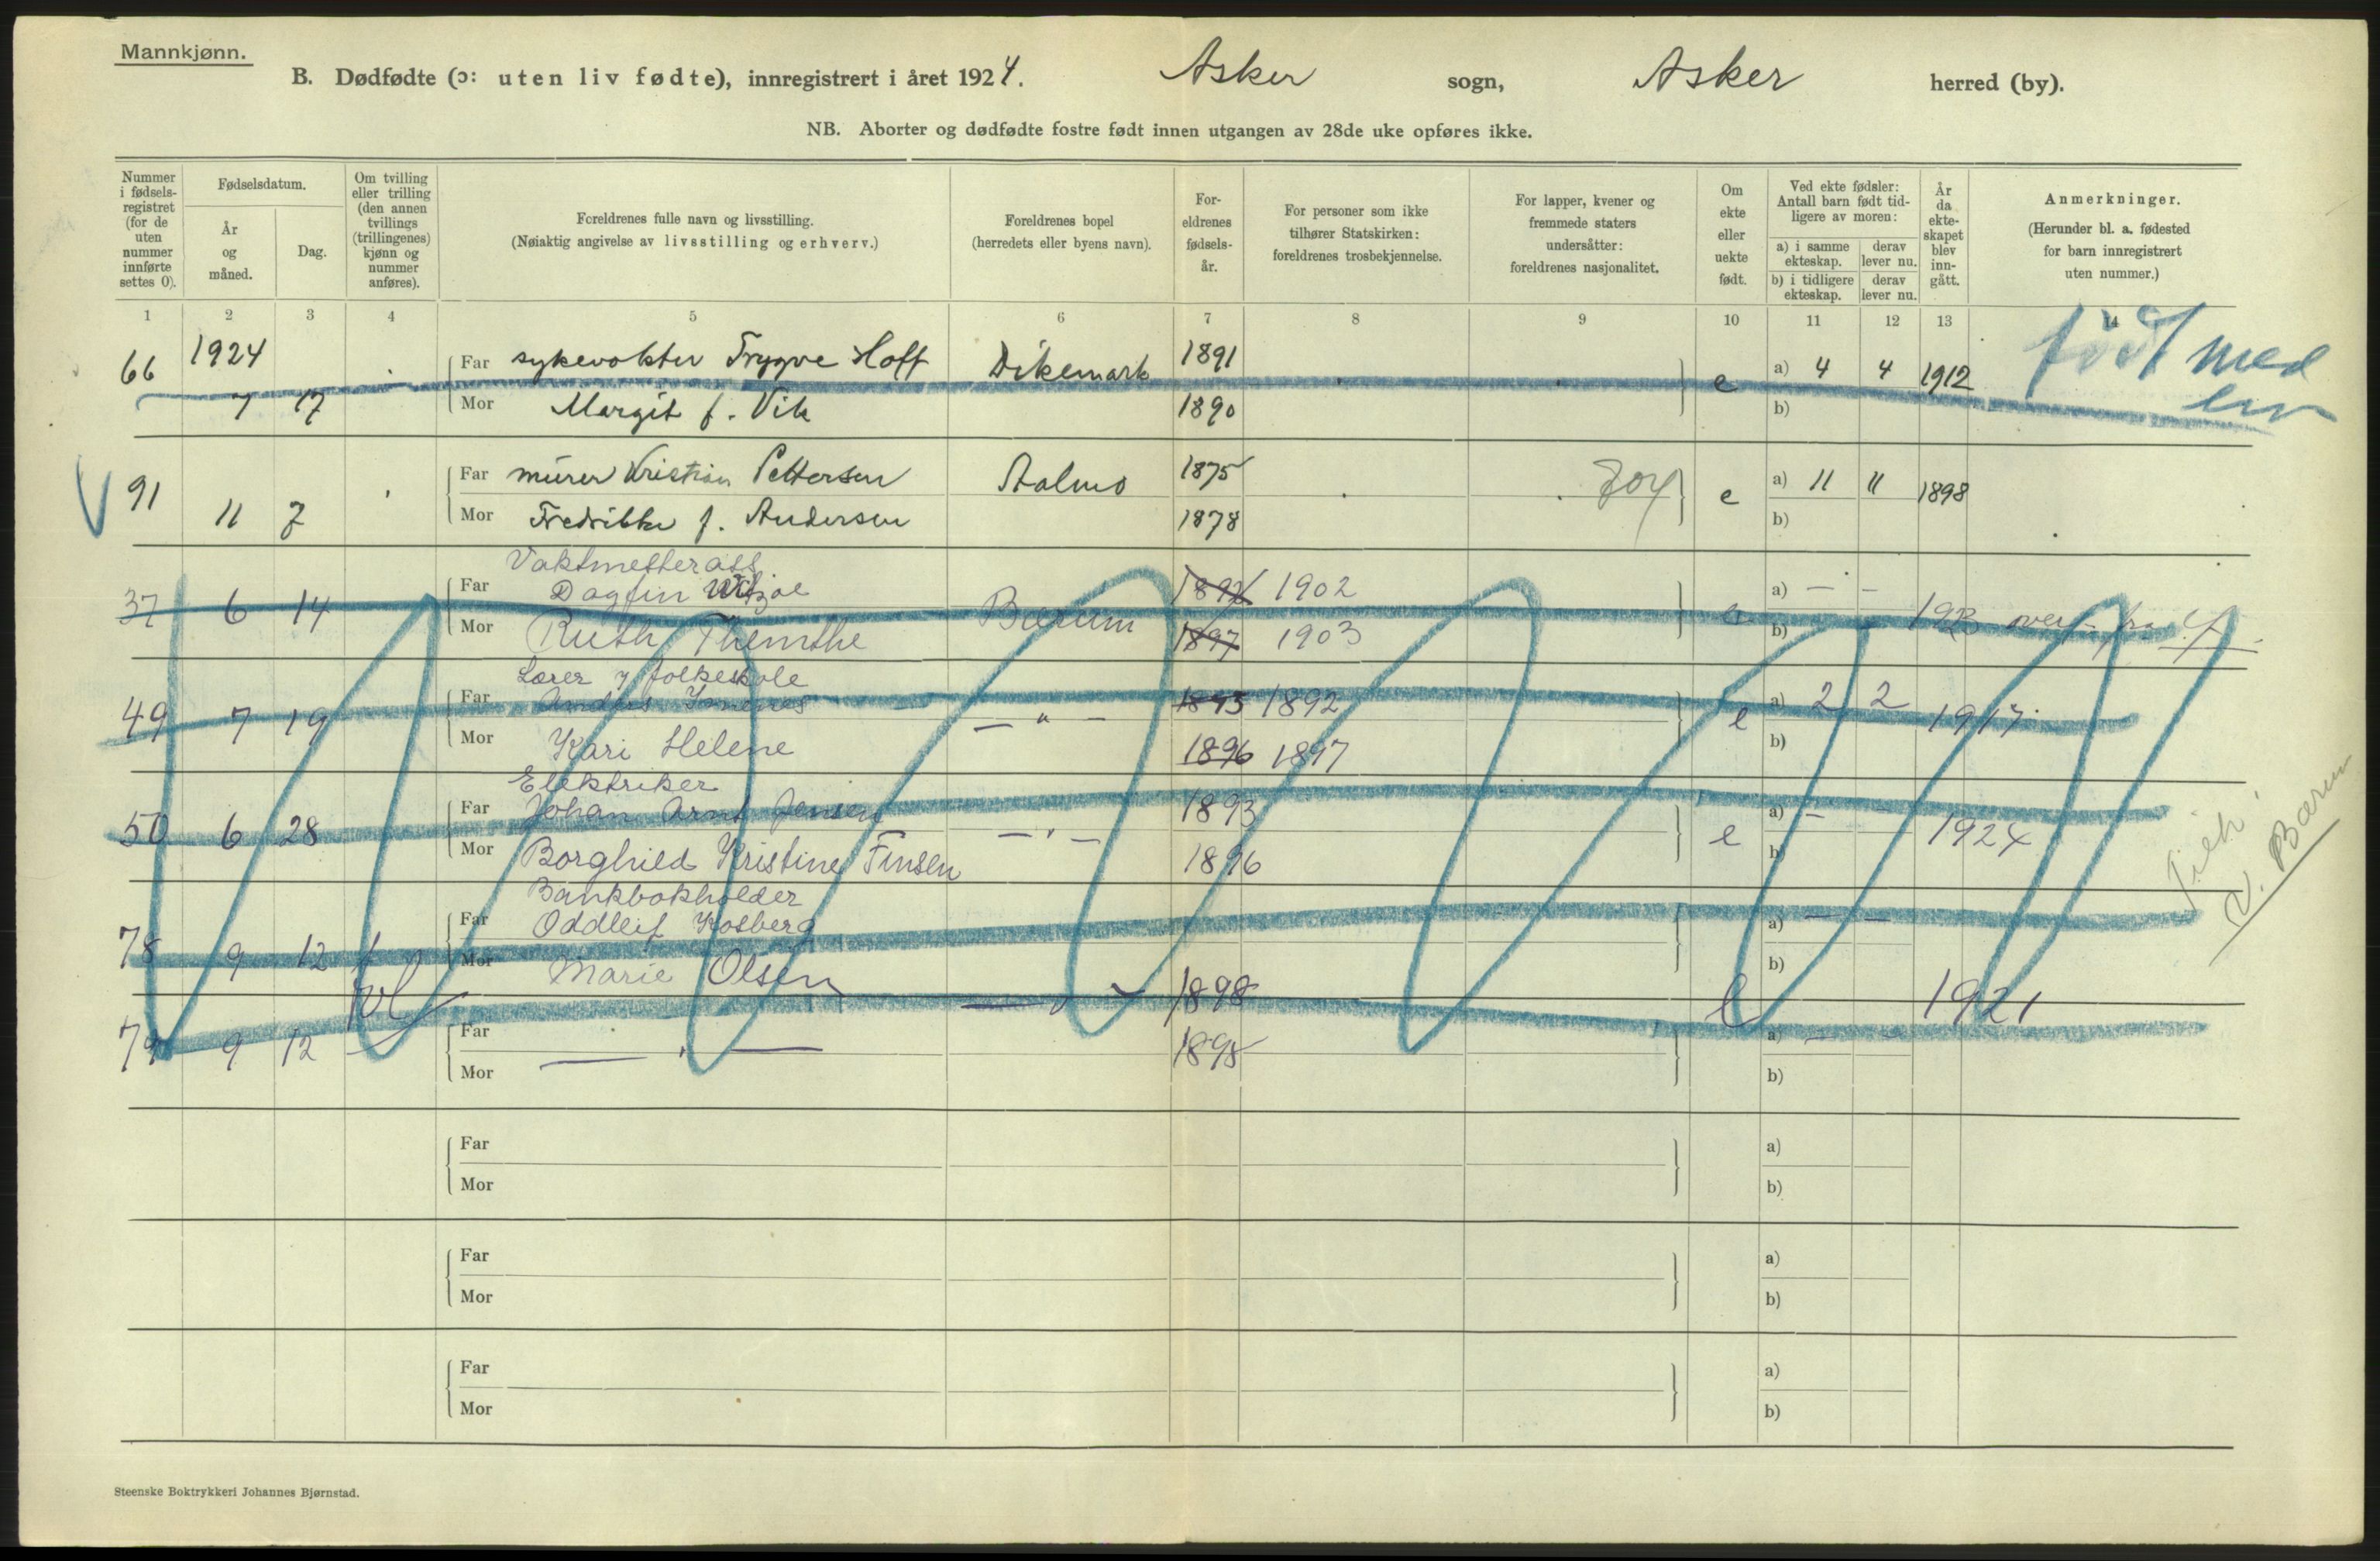 Mannkjønn.
B. Dødfødte (ɔ: uten liv fødte), innregistrert i året 1924. Asker sogn, Asker herred (by).
NB. Aborter og dødfødte fostre født innen utgangen av 28de uke opføres ikke.
Nummer i fødsels-registret (for de uten nummer innførte settes 0).
Fødselsdatum.
År og måned.
Dag.
Om tvilling eller trilling (den annen tvillings (trillingenes) kjønn og nummer anføres).
Foreldrenes fulle navn og livsstilling.
(Nøiaktig angivelse av livsstilling og erhverv.)
Foreldrenes bopel
(herredets eller byens navn).
For-eldrenes fødsels-år.
For personer som ikke tilhører Statskirken: foreldrenes trosbekjennelse.
For lapper, kvener og fremmede staters undersåtter: foreldrenes nasjonalitet.
Om ekte eller uekte født.
Ved ekte fødsler: Antall barn født tid-ligere av moren:
a) i samme ekteskap. derav lever nu.
b) i tidligere ekteskap. derav lever nu.
År da ekte-skapet blev inn-gått.
Anmerkninger.
(Herunder bl. a. fødested for barn innregistrert uten nummer.)
1 2 3 4 5 6 7 8 9 10 11 12 13 14
66 1924 Far sykevokter Trygve Hoff Dikemark 1891 e a) 4 4 1912 født med liv
7 17 Mor Margit f. Vik 1890 b)
V 91 Far murer Kristian Pettersen 1875 e a) 11 11 1898
11 7 Mor Fredrikke f. Andersen 1878 b)
Vaktmesterass.
37 6 14 Far Dagfin Bærum 1902 e a) — — 1923 overf. fra
Mor Ruth 1897 1903 b)
Lærer v folkeskole
49 7 19 Far Anders — " — 1893 1892 e a) 2 2 1917
Mor Kari Helene 1896 1897 b)
Elektriker
50 6 28 Far Johan Arnt Jensen — " — 1893 e a) — 1924
Mor Borghild Kristine Finsen 1896 b)
V. Bærum
Bankbokholder
78 9 12 Far Oddleif Kosberg a) — —
Mor Marie Olsen 1898 b) e 1921
79 9 12 Far — " — 1898 a) — —
Mor b)
Far a)
Mor b)
Far a)
Mor b)
Far a)
Mor b)
Steenske Boktrykkeri Johannes Bjørnstad.